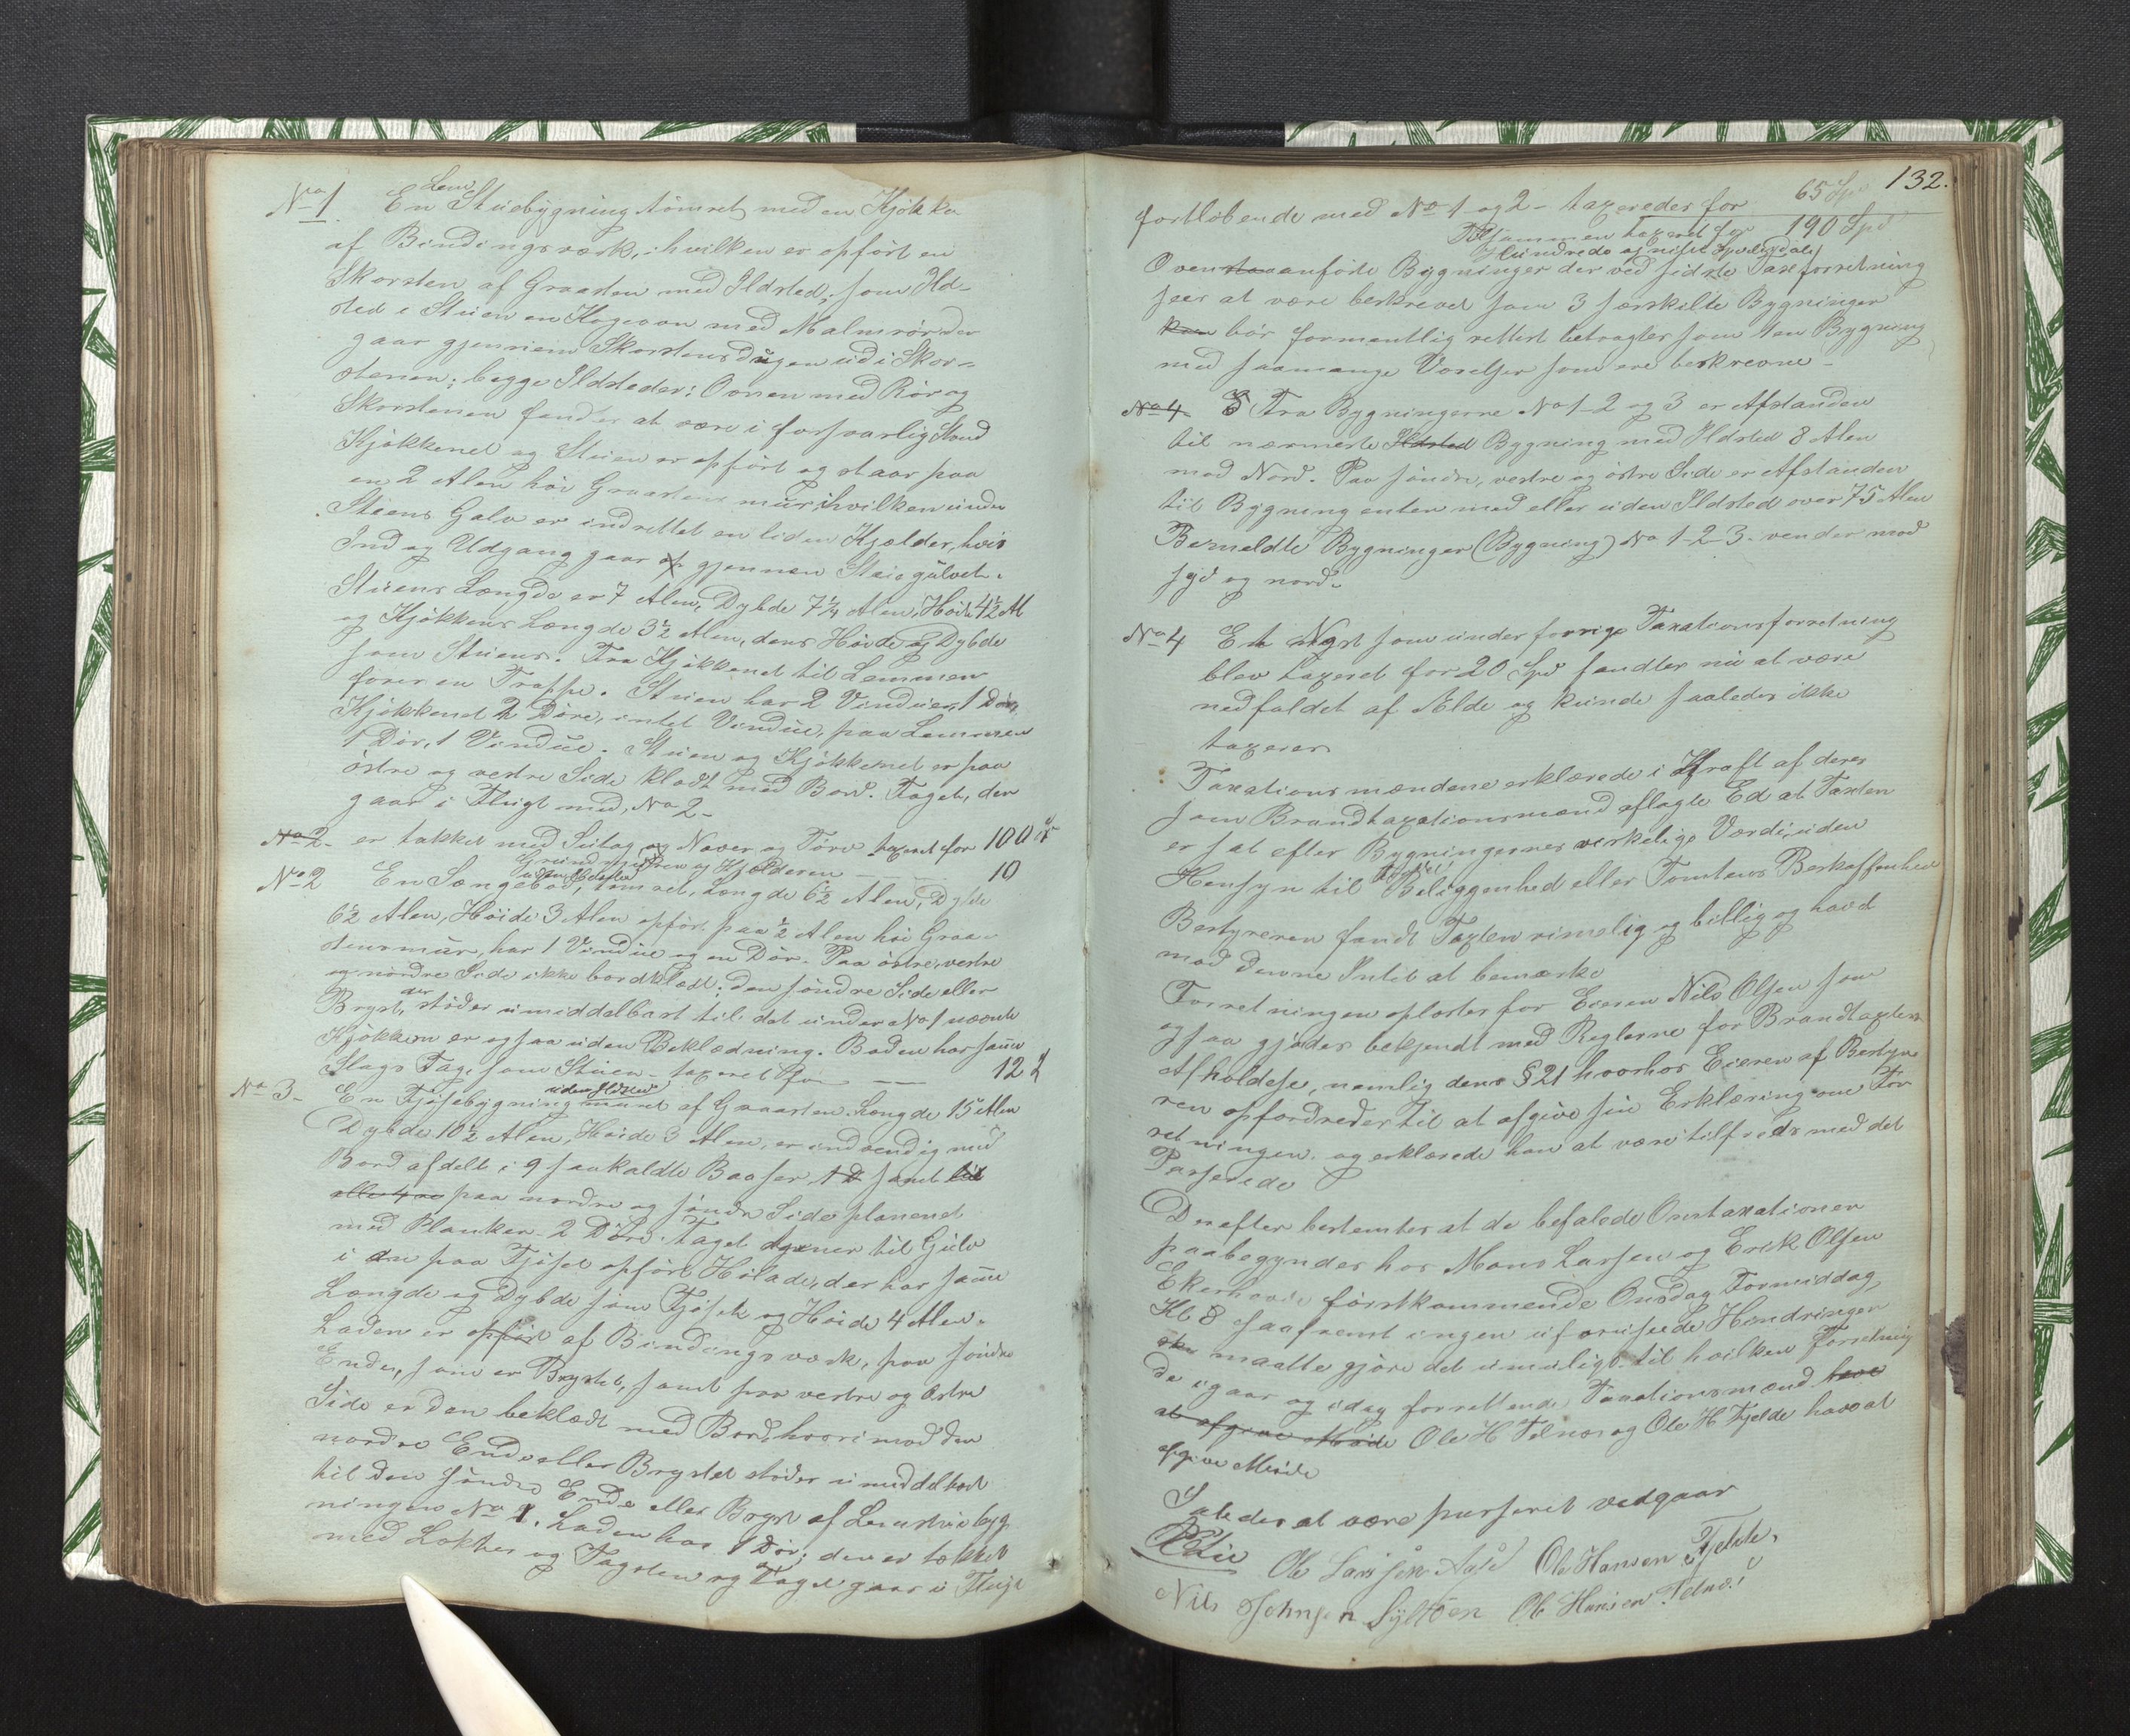 No 1. En Lem Stuebygning tømret med en Kjøkken
af Bindingsværk, i hvilken er opført en
Skorsten af Graasten med Ildsted, som Ild-
sted i Stuen en Kogeovn med Malmrør der
gaar gjennem Skorstensdugen ud i Skor-
stenen; begge Ildsteder: Ovnen med Rør og
Skorstenen fandtes at være i forsvarlig Stand
Kjøkkenet og Stuen er opført og staar paa
en 2 Alen høi Graastensmur, i hvilken under
Stuens Golv er indrettet en liden Kjælder, hvis
Ind og Udgang gaar gjennem Stuegulvet.
Stuens Længde er 7 Alen, Dybde 7 1/4 Alen, Høide 4 1/2 Al
og Kjøkkens Længde 3 1/2 Alen, dens Høide og Dybde
som Stuens. Fra Kjøkkenet til Lemmen
fører en Trappe. Stuen har 2 Vinduer, 1 Dør,
Kjøkkenet 2 Døre, intet Vindue, paa Lemmen
1 Dør, 1 Vindue. Stuen og Kjøkkenet er paa
østre og vestre Side klædt med Bord. Taget, der
gaar i Flugt med No 2 -
No 2 - er tækket med Sutag og Næver og Torv taxeret for 100
Grundmuren og Kjælderen — 10
No 2 En Sængebod, uden Ildsted tømret, Længde 6 1/2 Alen, Dybde
6 1/2 Alen, Høide 3 Alen opført paa 1/2 Alen høi Graa-
stensmur, har 1 Vindue og en Dør. Paa østre, vestre
og nordre Side ikke bordklædt; den søndre Side eller
Bryst, der støder umiddelbart til det under No 1 nævnte
Kjøkken er ogsaa uden Beklædning. Boden har samme
Slags Tag, som Stuen - taxeret for — 12
No 3 - En Fjøsebygning uden Ildsted muret af Graasten. Længde 15 Alen
Dybde 10 1/2 Alen, Høide 3 Alen, er indvendig med
Bord afdelt i 9 saakaldte Baaser, samt
paa nordre og søndre Side planeret
med Planker. 2 Døre. Taget tjener til Gulv
i den paa Fjøset opførte Hølade, der har samme
Længde og Dybde som Fjøset og Høide 4 Alen.
Laden er opført af Bindingsværk, paa søndre
Ende, som er Brystet, samt paa vestre og østre
Side er den beklædt med Bord, hvorimod den
nordre Ende eller Brystet støder umiddelbart
til den søndre Ende eller Bryst af Lemstuebyg
ningen No 1. Laden har 1 Dør; den er tækket
med Lækter og Tagsten og Taget gaar i Flugt
132.
fortløbende med No 1 og 2 - taxeredes for 65 Spd
Tilsammen taxeret for 190 Spd
Hundrede og niti Speciedaler
Ovenanførte Bygninger der ved sidste Taxtforretning
sees at være beskrevet som 3 særskilte Bygninger
bør formentlig rettest betragtes som 1 en Bygning
med saamange Værelser som ere beskrevne -
No 4. Fra Bygningerne No 1-2 og 3 er Afstanden
til nærmeste Ildsted Bygning med Ildsted 8 Alen
mod Nord. Paa søndre, vestre og østre Side er Afstanden
til Bygning enten med eller uden Ildsted over 75 Alen
Bemeldte Bygninger (Bygning) No 1-2-3- vender mod
syd og nord.
No 4 Et Nøst som under forrige Taxationsforretning
blev taxeret for 20 Spd fandtes nu at være
nedfaldet af Ælde og kunde saaledes ikke
taxeres
Taxationsmændene erklærede i Kraft af deres
som Brandtaxationsmænd aflagte Ed at Taxten
er sat efter Bygningernes virkelige Værdi, uden
Hensyn til Beliggenhed eller Tomtens Beskaffenhed
Bestyreren fandt Taxten rimelig og billig og havd
mod denne Intet at bemærke
Forretningen oplæstes for Eieren Nils Olsen som
ogsaa gjødes bekjendt med Reglerne for Brandtaxters
Afholdelse, nemlig dens § 21 hvorhos Eieren af Besty-
ren opfordredes til at afgive sin Erklæring om For
retningen, og erklærede han at være tilfreds med det
Passerede
Derefter bestemtes at de befalede Omtaxationer
paabegyndes hos Mons Larsen og Erik Olsen
Ekerhovd førstkommende Onsdag Formiddag
Kl 8 saafremt ingen uforudseede Hindringer
maatte gjøre det umuligt, til hvilken Forretning
de igaar og idag forrettende Taxationsmænd have
at afgive Møde Ole H Telnæs og Ole H Fjelde have at
afgive Møde
Saaledes at være passeret vedgaar
Ole Larsen Ole Hansen Fjelde,
Nils Johnsen Ole Hansen Telnæs